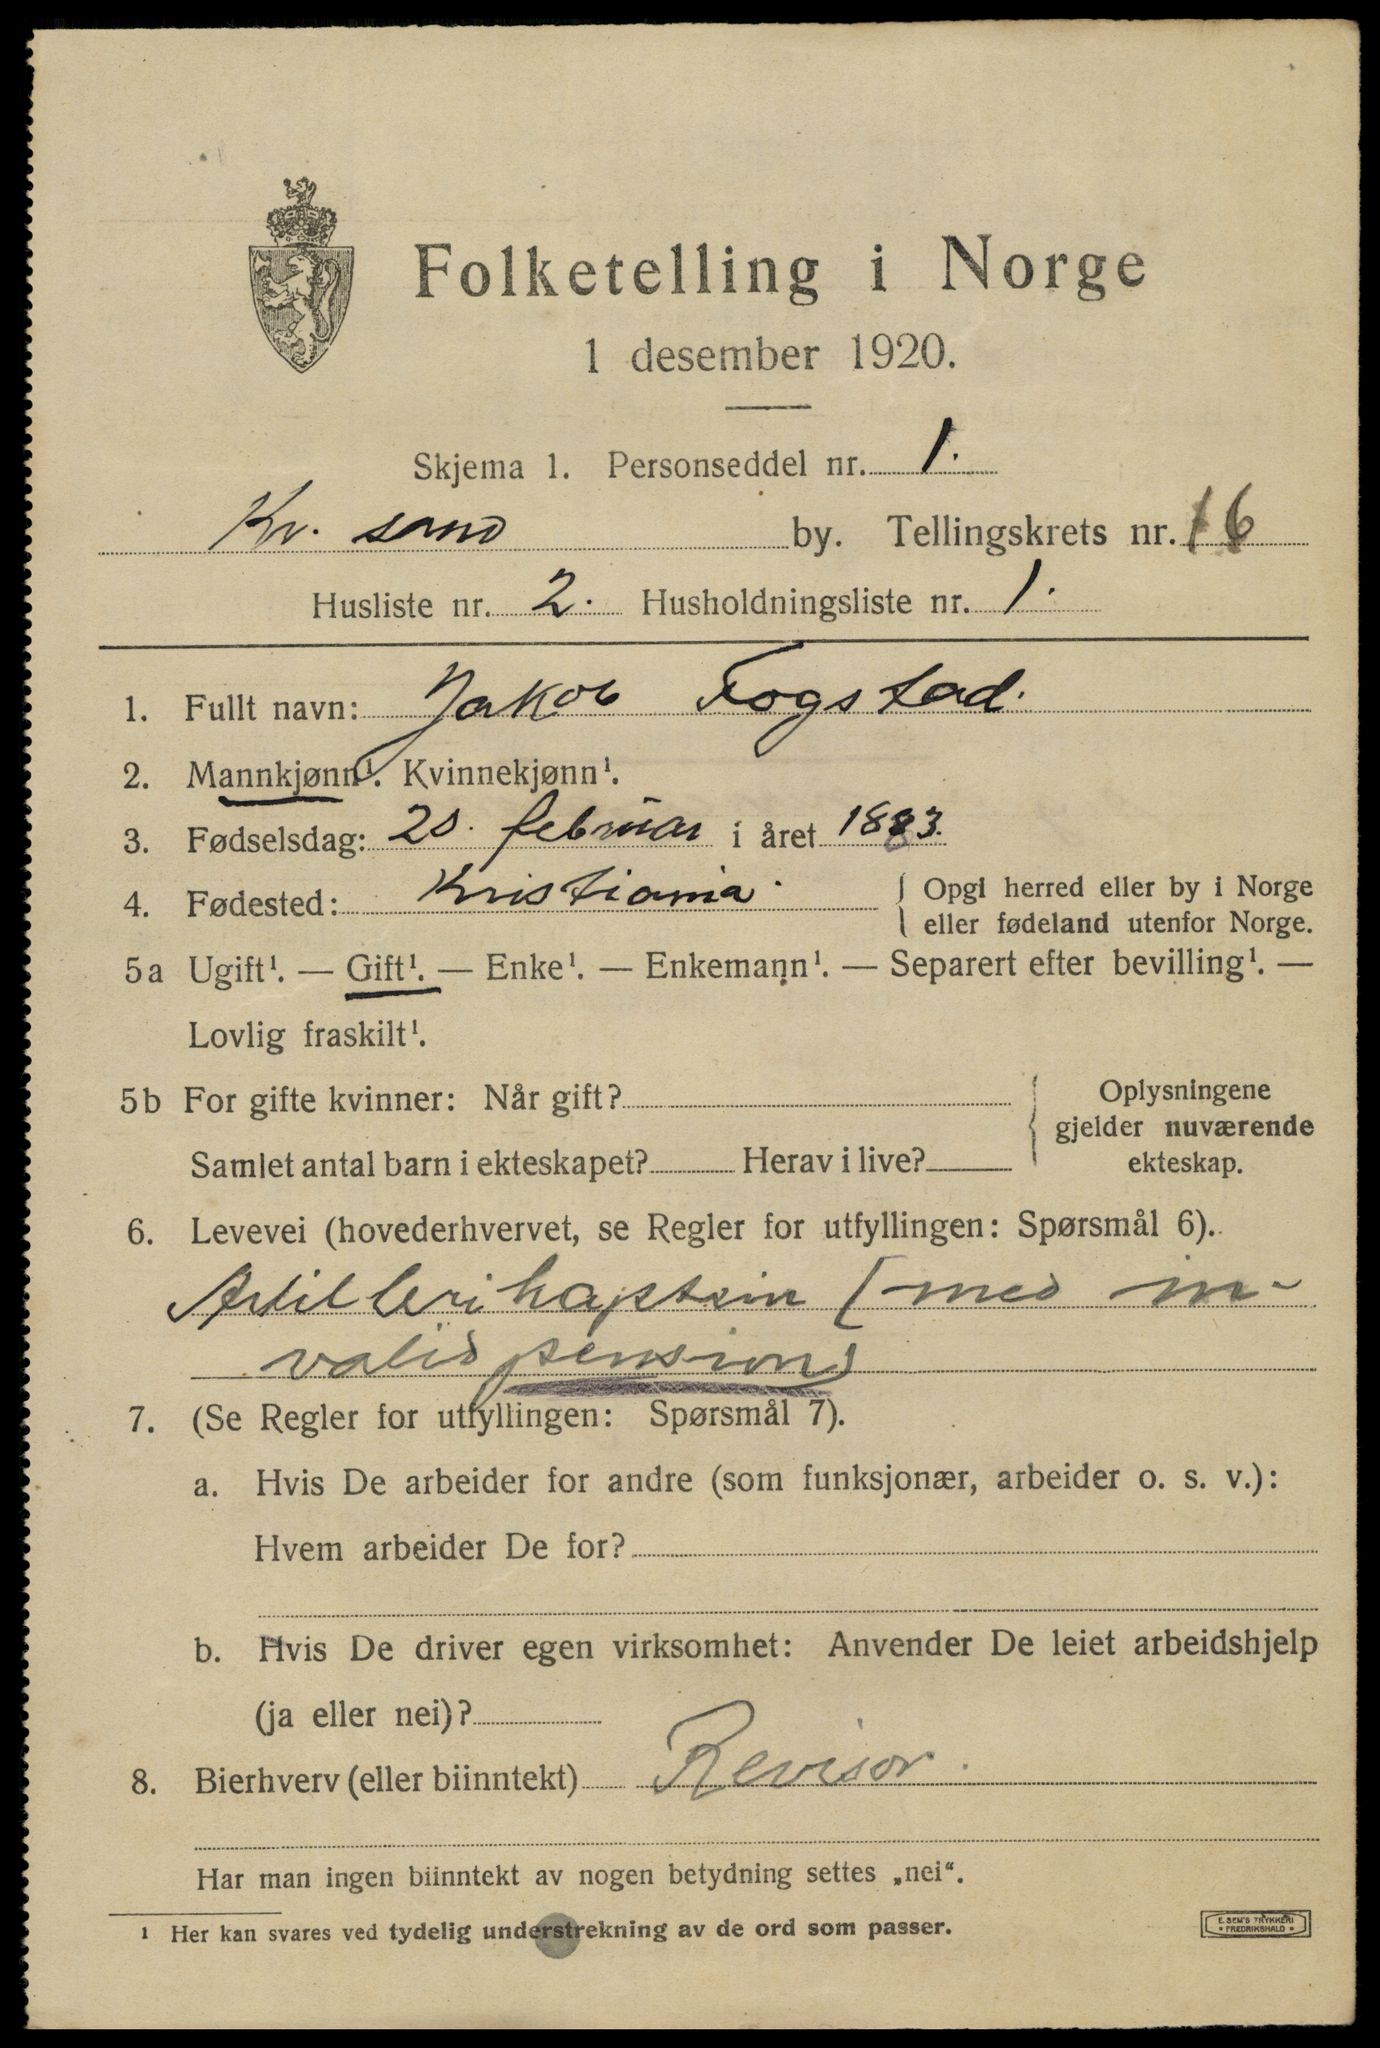 Folketelling i Norge
1 desember 1920.
Skjema 1. Personseddel nr. 1.
Kr. sand by. Tellingskrets nr. 16
Husliste nr. 2. Husholdningsliste nr. 1.
1. Fullt navn: Jakob Fogstad.
2. Mannkjønn¹. Kvinnekjønn¹.
3. Fødselsdag: 20. februar i året 1883.
4. Fødested: Kristiania. { Opgi herred eller by i Norge
eller fødeland utenfor Norge.
5a Ugift¹. — Gift¹. — Enke¹. — Enkemann¹. — Separert efter bevilling¹. —
Lovlig fraskilt¹.
5b For gifte kvinner: Når gift? { Oplysningene
gjelder nuværende
Samlet antal barn i ekteskapet? Herav i live? ekteskap.
6. Levevei (hovederhvervet, se Regler for utfyllingen: Spørsmål 6).
Artillerikaptein (med in-
validpension)
7. (Se Regler for utfyllingen: Spørsmål 7).
a. Hvis De arbeider for andre (som funksjonær, arbeider o. s. v.):
Hvem arbeider De for?
b. Hvis De driver egen virksomhet: Anvender De leiet arbeidshjelp
(ja eller nei)?
8. Bierhverv (eller biinntekt) Revisor.
Har man ingen biinntekt av nogen betydning settes „nei“.
¹ Her kan svares ved tydelig understrekning av de ord som passer.
E. SEM'S TRYKKERI
• FREDRIKSHALD •